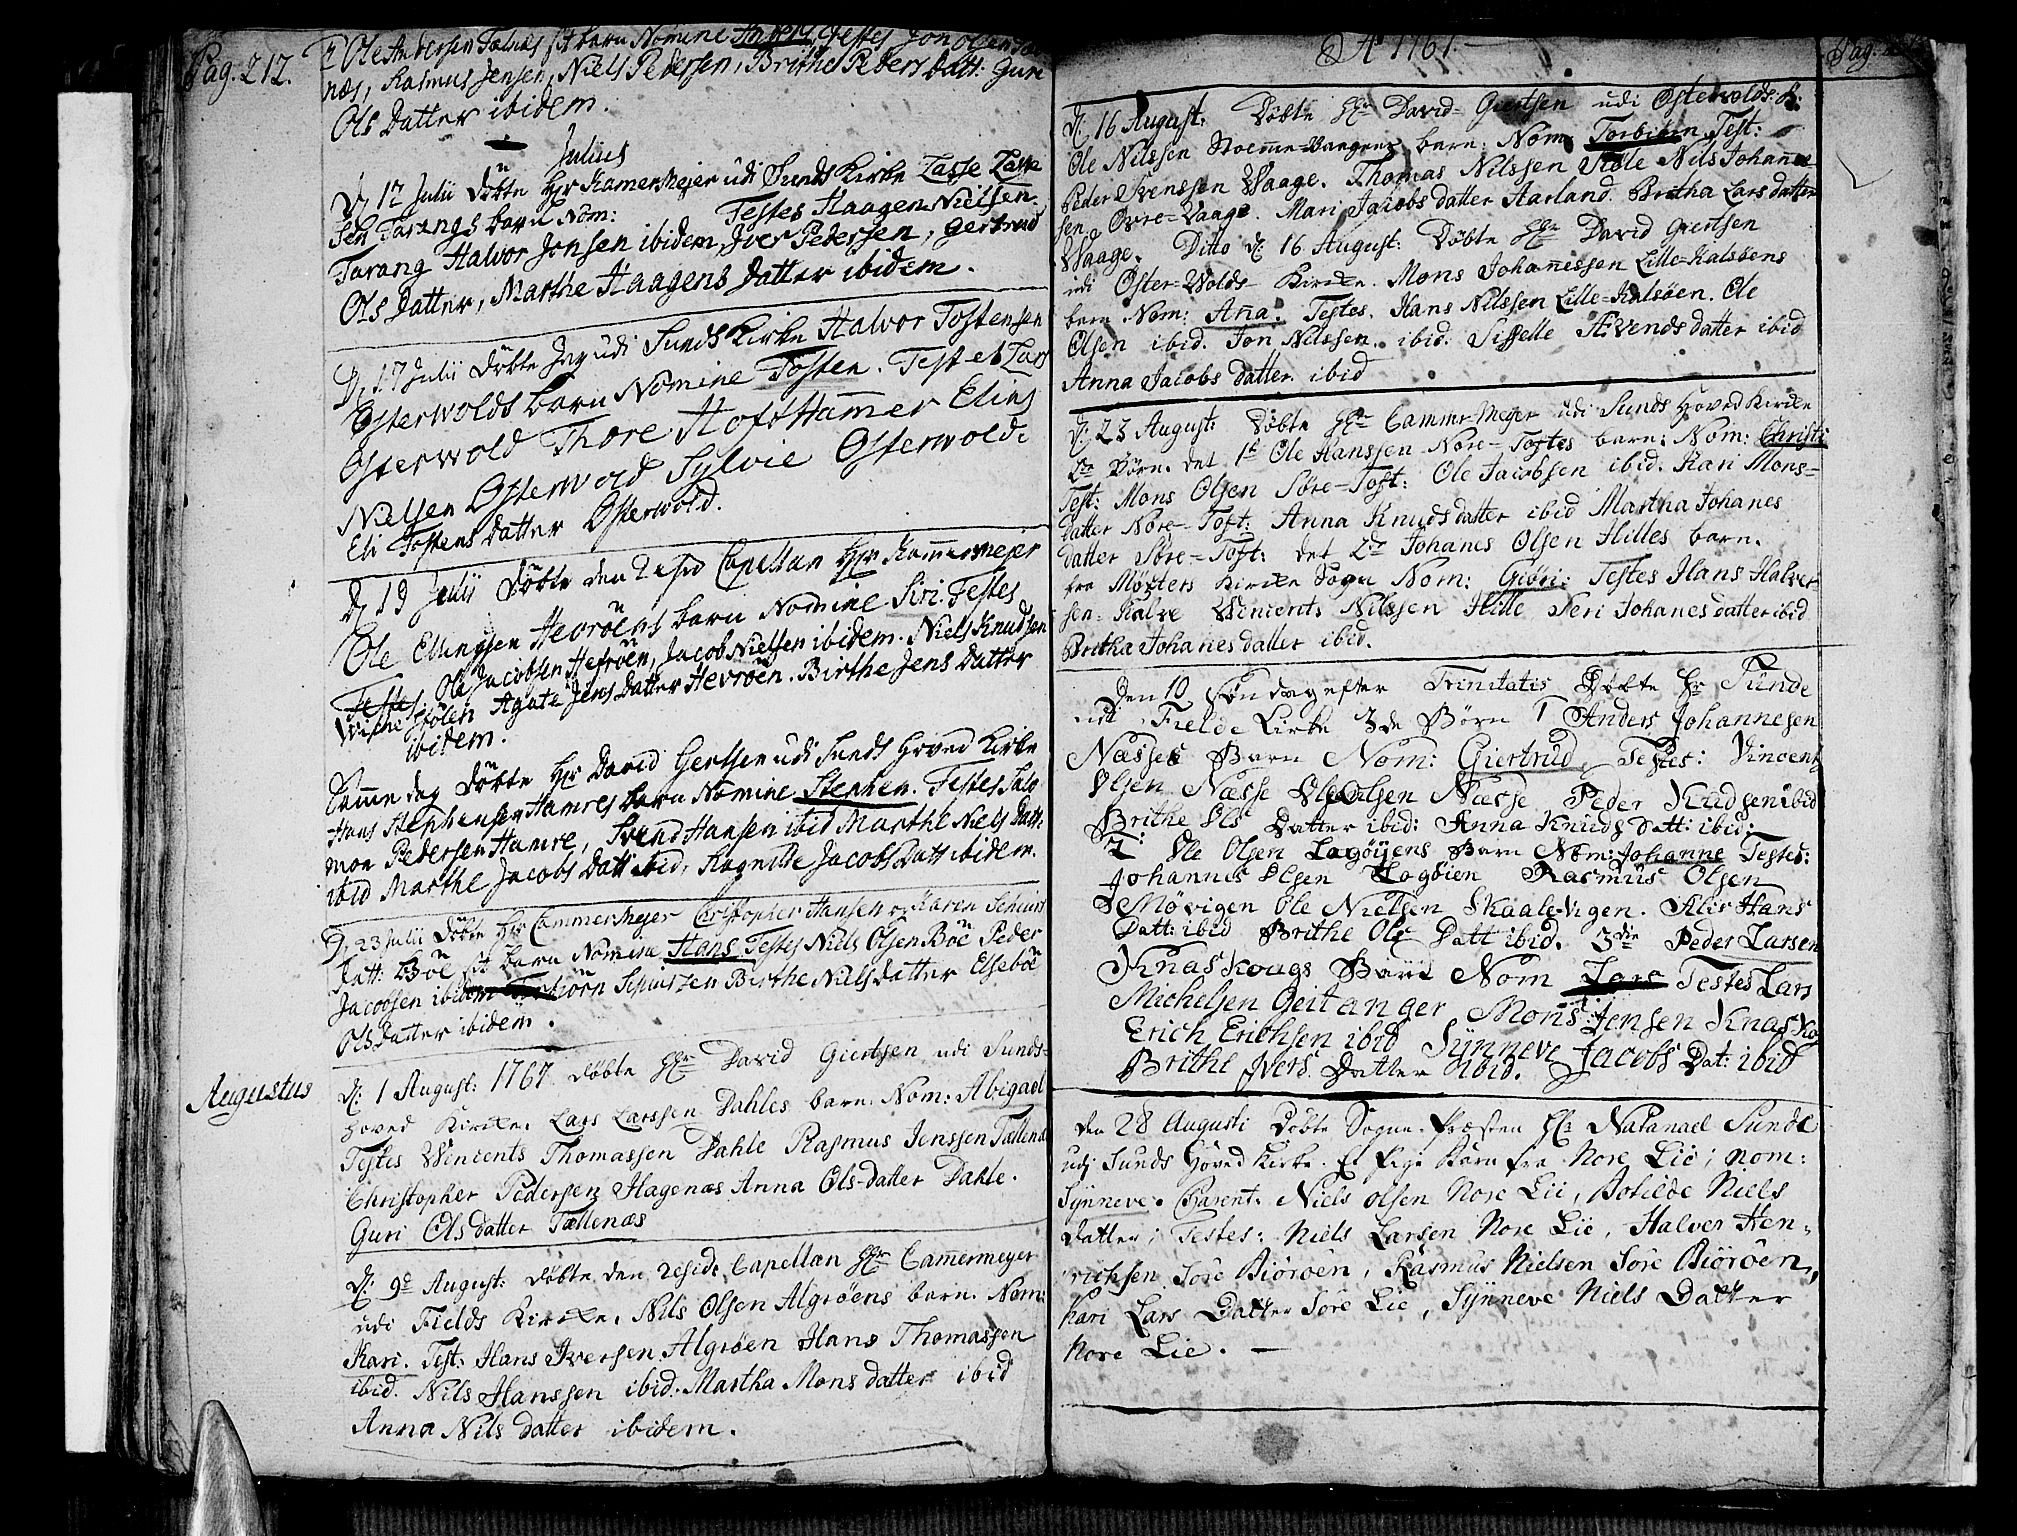 Pag. 212.
Ole Andersen Telnes sit barn Nomine Anders, Testes Jon Olsen Tel
nes, Rasmus Jensen, Niels Pedersen, Brithe Peders Datt: Guri
Ols Datter ibidem.
Julius
D 12 Julii Döbte Hr Kamermejer udi Sunds Kirke Lasse Lasse
sen Tarangs barn Nom: Testes Haagen Nielsen
Tarang Halvor Jonsen ibidem, Iver Pedersen, Gertrud
Ols Datter, Marthe Haagens Datter ibidem.
D. 17 Julii Döbte Jeg udi Sunds Kirke Halvor Tostensen
Osterwolds barn Nomine Tosten. Test-es Lars
Osterwold Thore Hofthammer Elias
Nielsen Osterwold Sylvie Osterwold.
Eli Tostens Datter Osterwold.
D 19 Julii Döbte den Resid Capellan Hr Kammermejer
Ole Ellingsen Hevröens barn Nomine Siri. Testes
Testes. Ole Jacobsen Hefröen, Jacob Nielsen ibidem. Niels Knudsen
Agate Jens Datter Hevröen. Birthe Jens Datter
ibidem.
Samme dag Döbte Hr David Gertsen udi Sunds Hoved Kirke
Hans Stephensen Hamres barn Nomine Stephen. Testes Salo
mon Pedersen Hamre, Svend Hansen ibid Marthe Niels Datt:
ibid Marthe Jacobs Datt ibid, Ragnilde Jacobs Datt ibidem.
D. 23 Julii Döbte Hr Cammermejer Christopher Hansen og Karen
Datt: Böe sit barn Nomine Hans Testes Niels Olsen Böe Peder
Jacobsen ibidem Torbiörn Birthe Niels Datter Elseböe
Ols Datter ibidem.
Augustus
D: 1 August: 1767 döbte Hr David Giertsen udi Sunds-
Hoved Kircke. Lars Larssen Dahles barn. Nom: Abigael
Testes Wincents Thomassen Dahle Rasmus Jenssen Tællenæs
Christopher Pedersen Hagenæs Anna Ols-datter Dahle.
Guri Ols datter Tællenæs
D: 9de August: döbte den resid: Capellan Hr Camermeyer
udi Fields Kircke. Nils Olsen Algröens barn. Nom:
Kari. Test: Hans Iversen Algröen Hans Thomassen
ibid. Nils Hanssen ibid: Martha Mons datter ibid
Anna Nils datter ibidem.
Ao 1767
Pag.
D. 16 August: Döbte Hr David Giertsen udi Östewolds: K:
Ole Nilssen Stoemme-Vaagens barn: Nom: Torbiörn Test:
Peder Svenssen Waage. Thomas Nilssen Viale Nils Johanne
sen Ovre-Vaage. Mari Jacobs datter Harland. Britha Lars datter
Waage. Ditto d. 16 August: Döbte Hr David Giertsen
udi Öster-Wolds Kircke. Mons Johannessen Lille-Kalsöens
barn Nom: Ana. Testes. Hans Nilssen Lille-Kalsöen. Ole
Olsen ibid. Jon Nilssen. ibid. Sisselle Ævends datter ibid
Anna Jacobs datter. ibid
D. 23 August: Döbte Hr Cammer-Meyer udi Sunds Hoved Kircke
2de Börn. det 1te Ole Hanssen Nore-Tostes barn: Nom: Christi
Test: Mons Olsen Söre-Toft: Ole Jacobsen ibid. Kari Mons=
datter Nore-Toft: Anna Knuds datter ibid Martha Johanes
datter Söre-Toft: det 2de Johanes Olsen Hilles barn.
fra Möxters Kircke Sogn Nom: Giöri: Testes Hans Halver
sen Kalve Wincents Nilssen Hille Seri Johanes datter ibid
Britha Johanes datter ibid.
Den 10 Söndag efter Trinitatis Döbte Hr Sunde
udi Fielde Kirke 3de Börn 1 Anders Johannesen
Næsses Barn Nom: Giertrud, Testes: Vincentz
Olsen Næsse Ole Olsen Næsse Peder Knudsen ibid
Brithe Ols Datter ibid: Anna Knuds Datt: ibid:
2: Ole Olsen Lagöyens Barn Nom: Johanne Testes:
Johannis Olsen Lagöien Rasmus Olsen
Mövigen Ole Nielsen Skaale-vigen. Alis Hans
Datt: ibid Brithe Ols Datt ibid. 3die Peder Larsen
Knaskougs Barn Nom Lars Testes Lars
Michelsen Geitanger Mons Jensen Knasko
Erich Erichsen ibid Synneve Jacobs Dat: ibid
Brithe Ivers Datter ibid.
den 28 Augusti Döbte Sogne-Præsten Hr Natanael Sunde
udj Sunds Hoved Kirke. Et Pige Barn fra Nore Lie; Nom:
Synneve. Parent: Niels Olsen Nore Lie, Botilde Niels
datter; Testes: Niels Larsen Nore Lie, Halver Hen-
richsen Söre Biöröen, Rasmus Nielsen Söre Biöröen,
Kari Lars Datter Söre Lie, Synneve Niels Datter
Nore Lie.